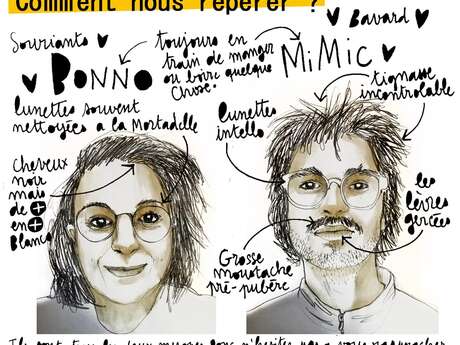 Comment nous repérer ?
Souriants
toujours en
train de manger
ou boire quelque
chose!
Bavard
BONNO
MiMic
tignasse
incontrolable
lunettes souvent
nettoyées a la Mortadelle
lunettes
intello
Cheveux
noir
mais
de +
en +
Blancs
les
lèvres
gercées
Grosse
moustache
pré-pubère